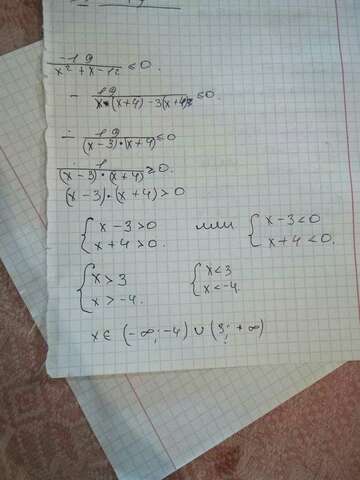 -19/(x² + x - 12) ≤ 0.
- 19/(x · (x+4) - 3(x+4)) ≤ 0.
- 19/((x-3)·(x+4)) ≤ 0
1/((x-3)·(x+4)) ≥ 0.
(x-3)·(x+4) > 0
{ x-3>0 или { x-3<0
{ x+4>0. { x+4<0.
{ x>3 { x<3
{ x>-4. { x<-4.
x ∈ (-∞; -4) ∪ (3; +∞)